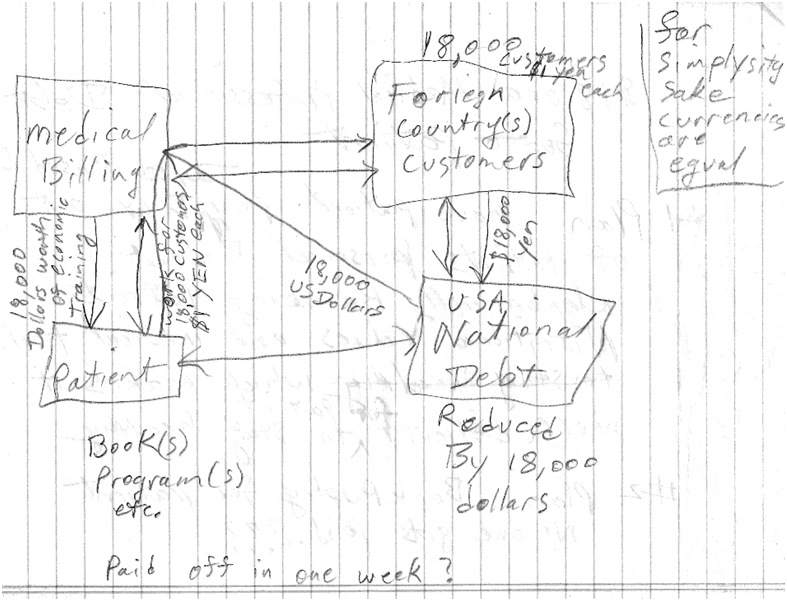 18,000
customers
$1 yen
each
for
simplysity
sake
currencies
are
equal
medical
Billing
Foriegn
country(s)
customers
18,000
Dollars worth
of economic
Training
work for
18,000 customers
$1 YEN each
18,000
US Dollars
$18,000
yen
Patient
USA
National
Debt
Book(s)
Program(s)
etc.
Reduced
By 18,000
dollars
Paid off in one week?